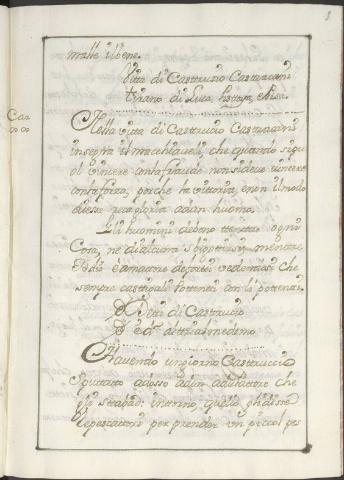 8
mal è il bene.
Vita di Castruccio Castracani
tirano di Luca
Car
Nella vita di Castrucio Castracani
insegna il Machiaveli, che quando si può
vincere con la fraude non si deve vincere
con la forza, perche la vitoria, e non il modo
di essa reca gloria ad un huomo.
Gli huomini debono tentar ogni
cosa, ne di alcuna sbigotirsi,
Iddio è amatore de forti, vedendosi che
sempre castiga li inpotenti con li potenti.
Detti di Castrucio
Havendo un giorno Castruccio
sputato adosso ad un adulatore che
gli intorno, quello gli disse
le pescatori per prender un piccol pes